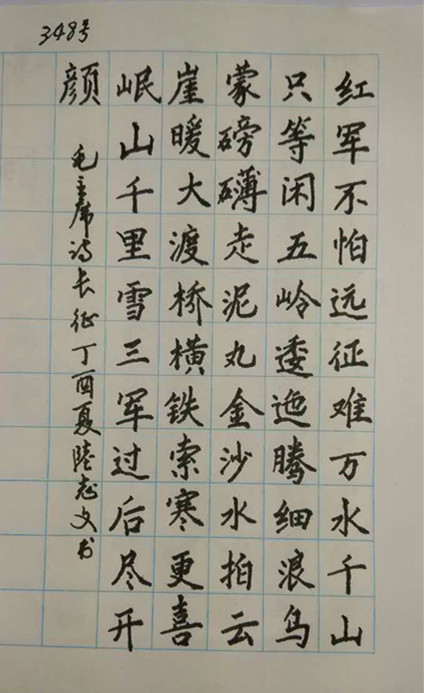 348号
红军不怕远征难万水千山
只等闲五岭逶迤腾细浪乌
蒙磅礴走泥丸金沙水拍云
崖暖大渡桥横铁索寒更喜
岷山千里雪三军过后尽开
颜
毛主席诗长征丁酉夏陆志文书